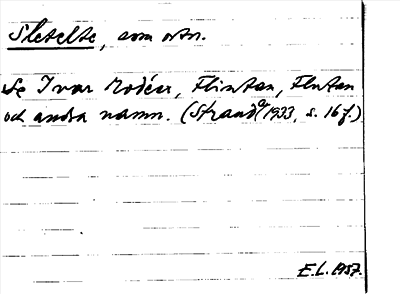 Sletelte, som ortn.
Se Ivar Modéer, Flintan, Flutan
och andra namn. (Stranda 1933, s. 16 f.)
E.L. 1957.